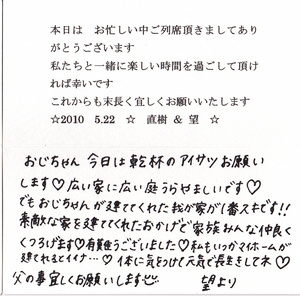 本日は　お忙しい中ご列席頂きましてあり
がとうございます
私たちと一緒に楽しい時間を過ごして頂け
れば幸いです
これからも末長く宜しくお願いいたします
☆2010　5.22　☆　直樹 & 望　☆
おじちゃん 今日は乾杯のアイサツお願い
します♡広い家に広い庭うらやましいです♡
でもおじちゃんが建ててくれた我が家が1番スキです!!
素敵な家を建ててくれたおかげで家族みんな仲良く
くつろげます♡有難うございました♡私もいつかマイホームが
建てれるとイイナ…♡ 体に気をつけて元気で長生きしてネ♡
父の事宜しくお願いします 望より